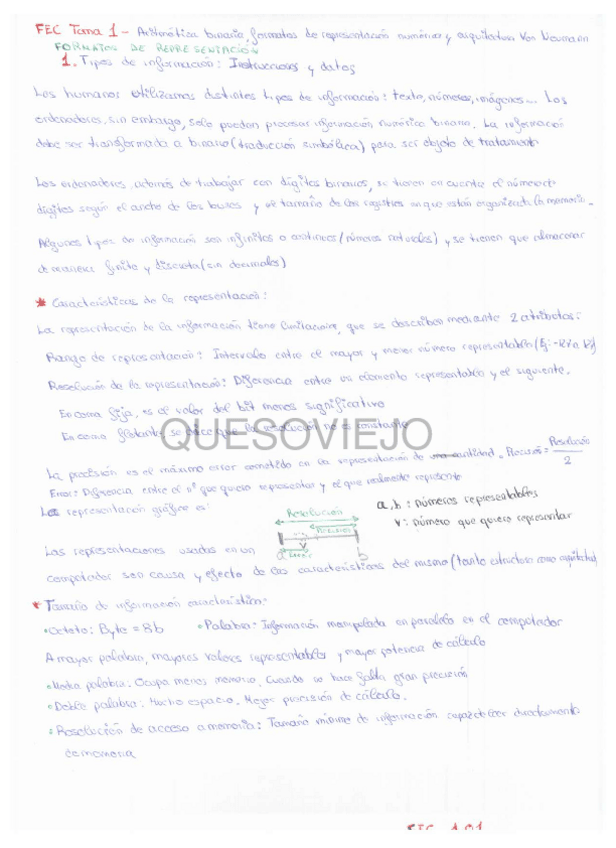 FEC Tema 1 - Aritmética binaria, formatos de representación numérica y arquitectura Von Neumann
FORMATOS DE REPRESENTACIÓN
1. Tipos de información: Instrucciones y datos
Los humanos utilizamos distintos tipos de información: texto, números, imágenes... Los
ordenadores, sin embargo, solo pueden procesar información numérica binaria. La información
debe ser transformada a binario (traducción simbólica) para ser objeto de tratamiento
Los ordenadores, además de trabajar con dígitos binarios, se tienen en cuenta el número de
dígitos según el ancho de los buses y el tamaño de los registros en que están organizada la memoria.
Algunos tipos de información son infinitos o continuos (números naturales) y se tienen que almacenar
de manera finita y discreta (sin decimales)
* Características de la representación:
La representación de la información tiene limitaciones, que se describen mediante 2 atributos:
Rango de representación: Intervalo entre el mayor y menor número representable
Resolución de la representación: Diferencia entre un elemento representable y el siguiente.
En coma fija, es el valor del bit menos significativo
En coma flotante, se dice que la resolución no es constante
QUESOVIEJO
La precisión es el máximo error cometido en la representación de cantidad. Precisión = Resolución / 2
Error: Diferencia entre el nº que quiero representar y el que realmente represento
La representación gráfica es:
Resolución
Precisión
a Error b
v
a, b: números representables
v: número que quiero representar
Las representaciones usadas en un
computador son causa y efecto de las características del mismo (tanto estructura como arquitectura)
* Tamaño de información característico:
• Octeto: Byte = 8b • Palabra: Información manipulada en paralelo en el computador
A mayor palabra, mayores valores representables y mayor potencia de cálculo
• Media palabra: Ocupa menos memoria. Cuando no hace falta gran precisión
• Doble palabra: Mucho espacio. Mejor precisión de cálculo.
• Resolución de acceso a memoria: Tamaño mínimo de información capaz de leer directamente
de memoria
FEC 1.01